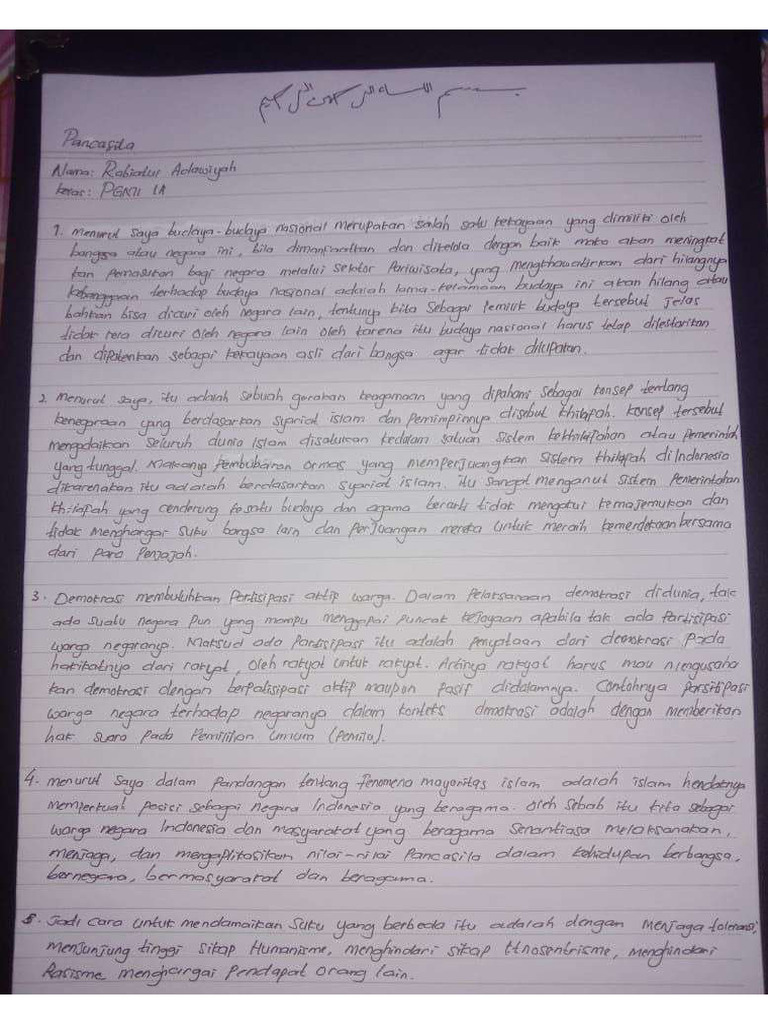 بسم الله الرحمن الرحيم
Pancasila
Nama: Rabiatul Adawiyah
Kelas: PGMI 1A
1. Menurut saya budaya-budaya nasional merupakan salah satu kekayaan yang dimiliki oleh
bangsa atau negara ini, bila dimanfaatkan dan dikelola dengan baik maka akan meningkat
kan pemasukan bagi negara melalui sektor pariwisata, yang mengkhawatirkan dari hilangnya
kebanggaan terhadap budaya nasional adalah lama-kelamaan budaya ini akan hilang atau
bahkan bisa dicuri oleh negara lain, tentunya kita sebagai pemilik budaya tersebut jelas
tidak rela dicuri oleh negara lain oleh karena itu budaya nasional harus tetap dilestarikan
dan dipatenkan sebagai kekayaan asli dari bangsa agar tidak dilupakan.
2. Menurut saya, itu adalah sebuah gerakan keagamaan yang dipahami sebagai konsep tentang
kenegaraan yang berdasarkan syariat islam dan pemimpinnya disebut khilapah. Konsep tersebut
mengadaikan seluruh dunia Islam disatukan kedalam satuan sistem kekhilapahan atau pemerintah
yang tunggal. Makanya pembubaran ormas yang memperjuangkan sistem khilapah di Indonesia
dikarenakan itu adalah berdasarkan syariat islam. Itu sangat menganut sistem pemerintahan
khilapah yang cenderung ke satu budaya dan agama berarti tidak mengakui kemajemukan dan
tidak menghargai suku bangsa lain dan perjuangan mereka untuk meraih kemerdekaan bersama
dari para penjajah.
3. Demokrasi membutuhkan partisipasi aktif warga. Dalam pelaksanaan demokrasi didunia, tak
ada suatu negara pun yang mampu menggapai puncak kejayaan apabila tak ada partisipasi
warga negaranya. Maksud ada partisipasi itu adalah penyataan dari demokrasi pada
hakikatnya dari rakyat, oleh rakyat untuk rakyat. Artinya rakyat harus mau mengusaha
kan demokrasi dengan berpatisipasi aktif maupun pasif didalamnya. Contohnya parsitipasi
warga negara terhadap negaranya dalam konteks dmokrasi adalah dengan memberikan
hak suara pada Pemilihan Umum (Pemilu).
4. Menurut saya dalam pandangan tentang fenomena mayoritas islam adalah islam hendaknya
memperkuat posisi sebagai negara Indonesia yang beragama. Oleh sebab itu kita sebagai
warga negara Indonesia dan masyarakat yang beragama senantiasa melaksanakan,
menjaga, dan mengaplikasikan nilai-nilai Pancasila dalam kehidupan berbangsa,
bernegara, bermasyarakat dan beragama.
5. Jadi cara untuk mendamaikan suku yang berbeda itu adalah dengan menjaga toleransi,
menjunjung tinggi sikap Humanisme, menghindari sikap Etnosentrisme, menghindari
Rasisme menghargai pendapat orang lain.